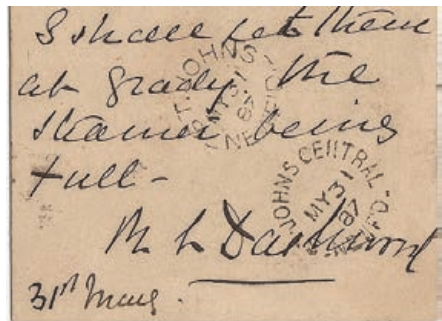 I shall get them
at Grady the
steamer being
full -
31st May.
ST. JOHN'S
MY 31
87
NEWF'D
ST. JOHNS CENTRAL
MY 31
87
NEWF'D.